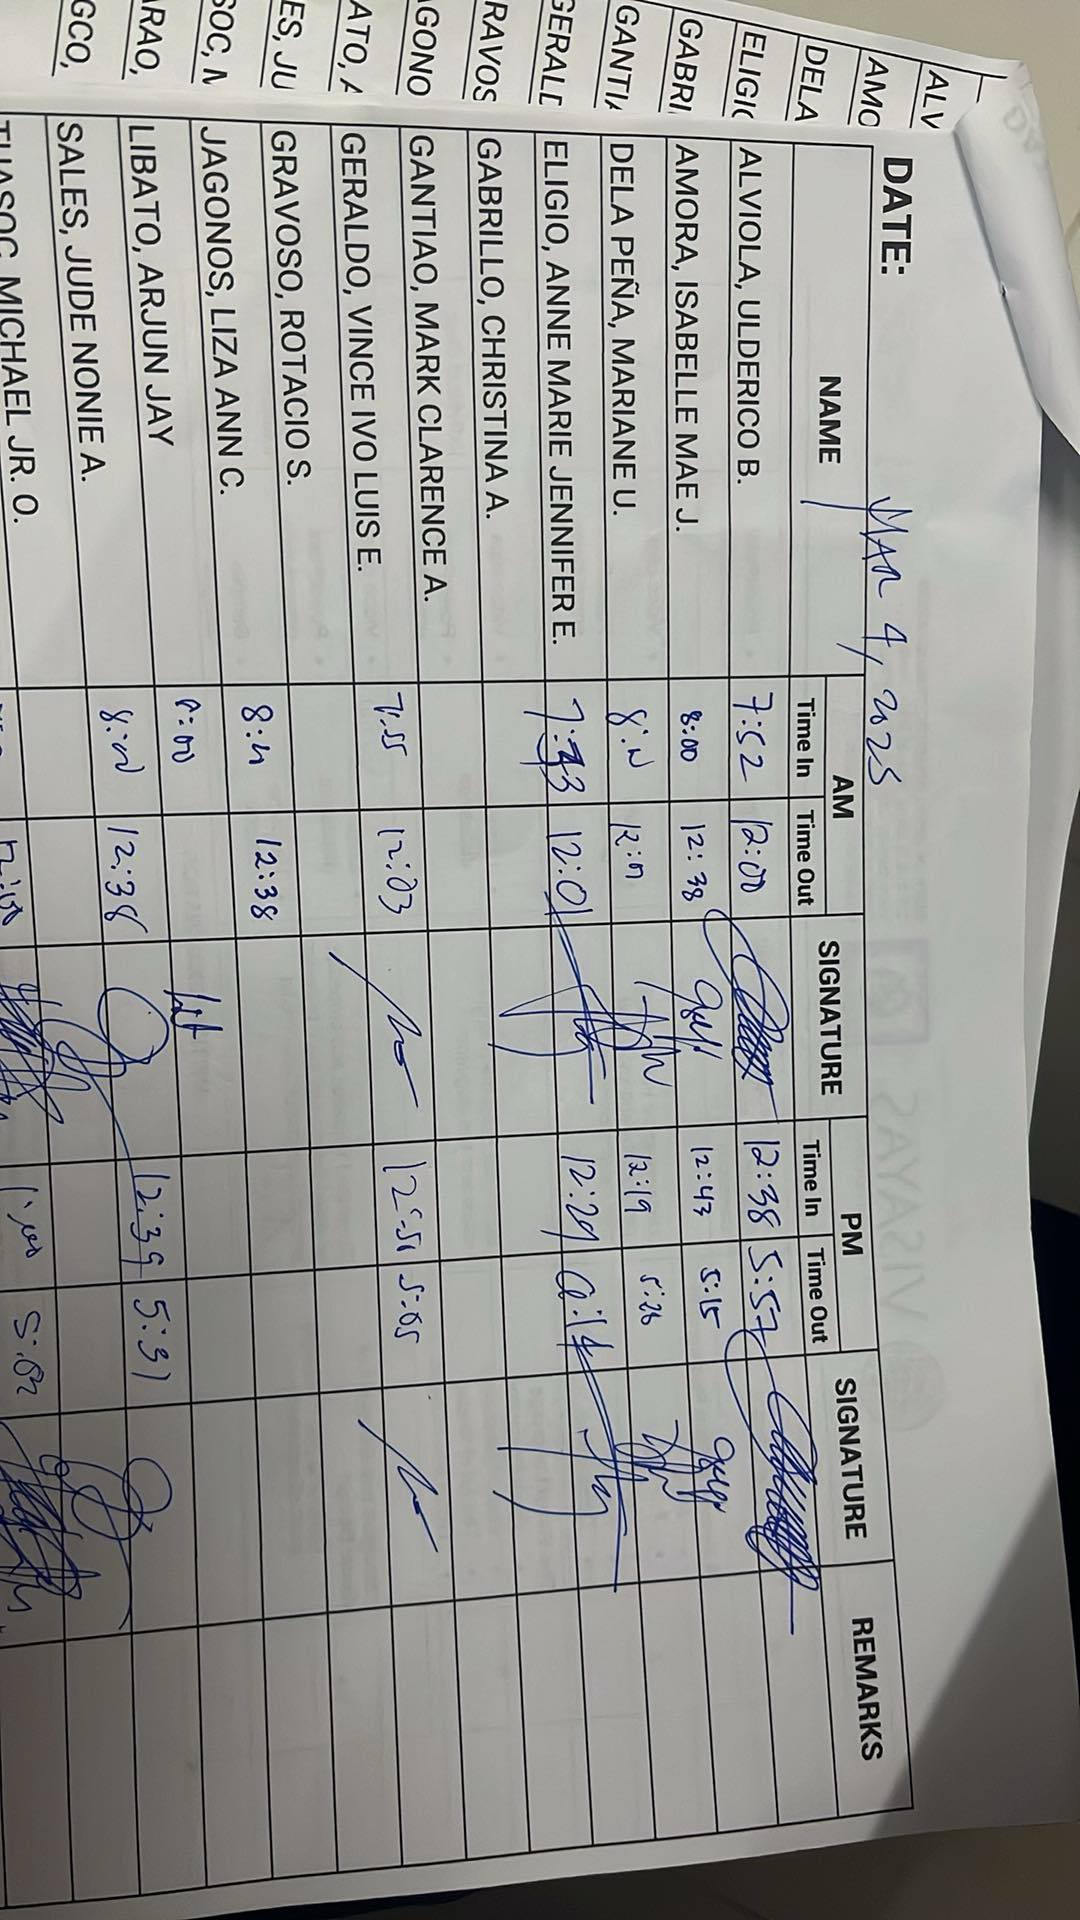 ALV
AMO
DELA
ELIGIO
GABRI
GANTIA
GERALD
RAVOS
AGONO
ATO, A
ES, JU
SOC, M
RAO,
GCO,
DATE: MAR 4, 2025
NAME AM SIGNATURE PM SIGNATURE REMARKS
Time In Time Out Time In Time Out
ALVIOLA, ULDERICO B. 7:52 12:00 12:38 5:57
AMORA, ISABELLE MAE J. 8:00 12:38 12:43 5:15
DELA PEÑA, MARIANE U. 12:19 5:26
ELIGIO, ANNE MARIE JENNIFER E. 12:01 12:29 6:14
GABRILLO, CHRISTINA A.
GANTIAO, MARK CLARENCE A. 7:55 12:03 12:51 5:05
GERALDO, VINCE IVO LUIS E.
GRAVOSO, ROTACIO S.
JAGONOS, LIZA ANN C. 12:38
LIBATO, ARJUN JAY 8:00
SALES, JUDE NONIE A. 12:38 12:39 5:31
MICHAEL JR. O. 1:00 5:02